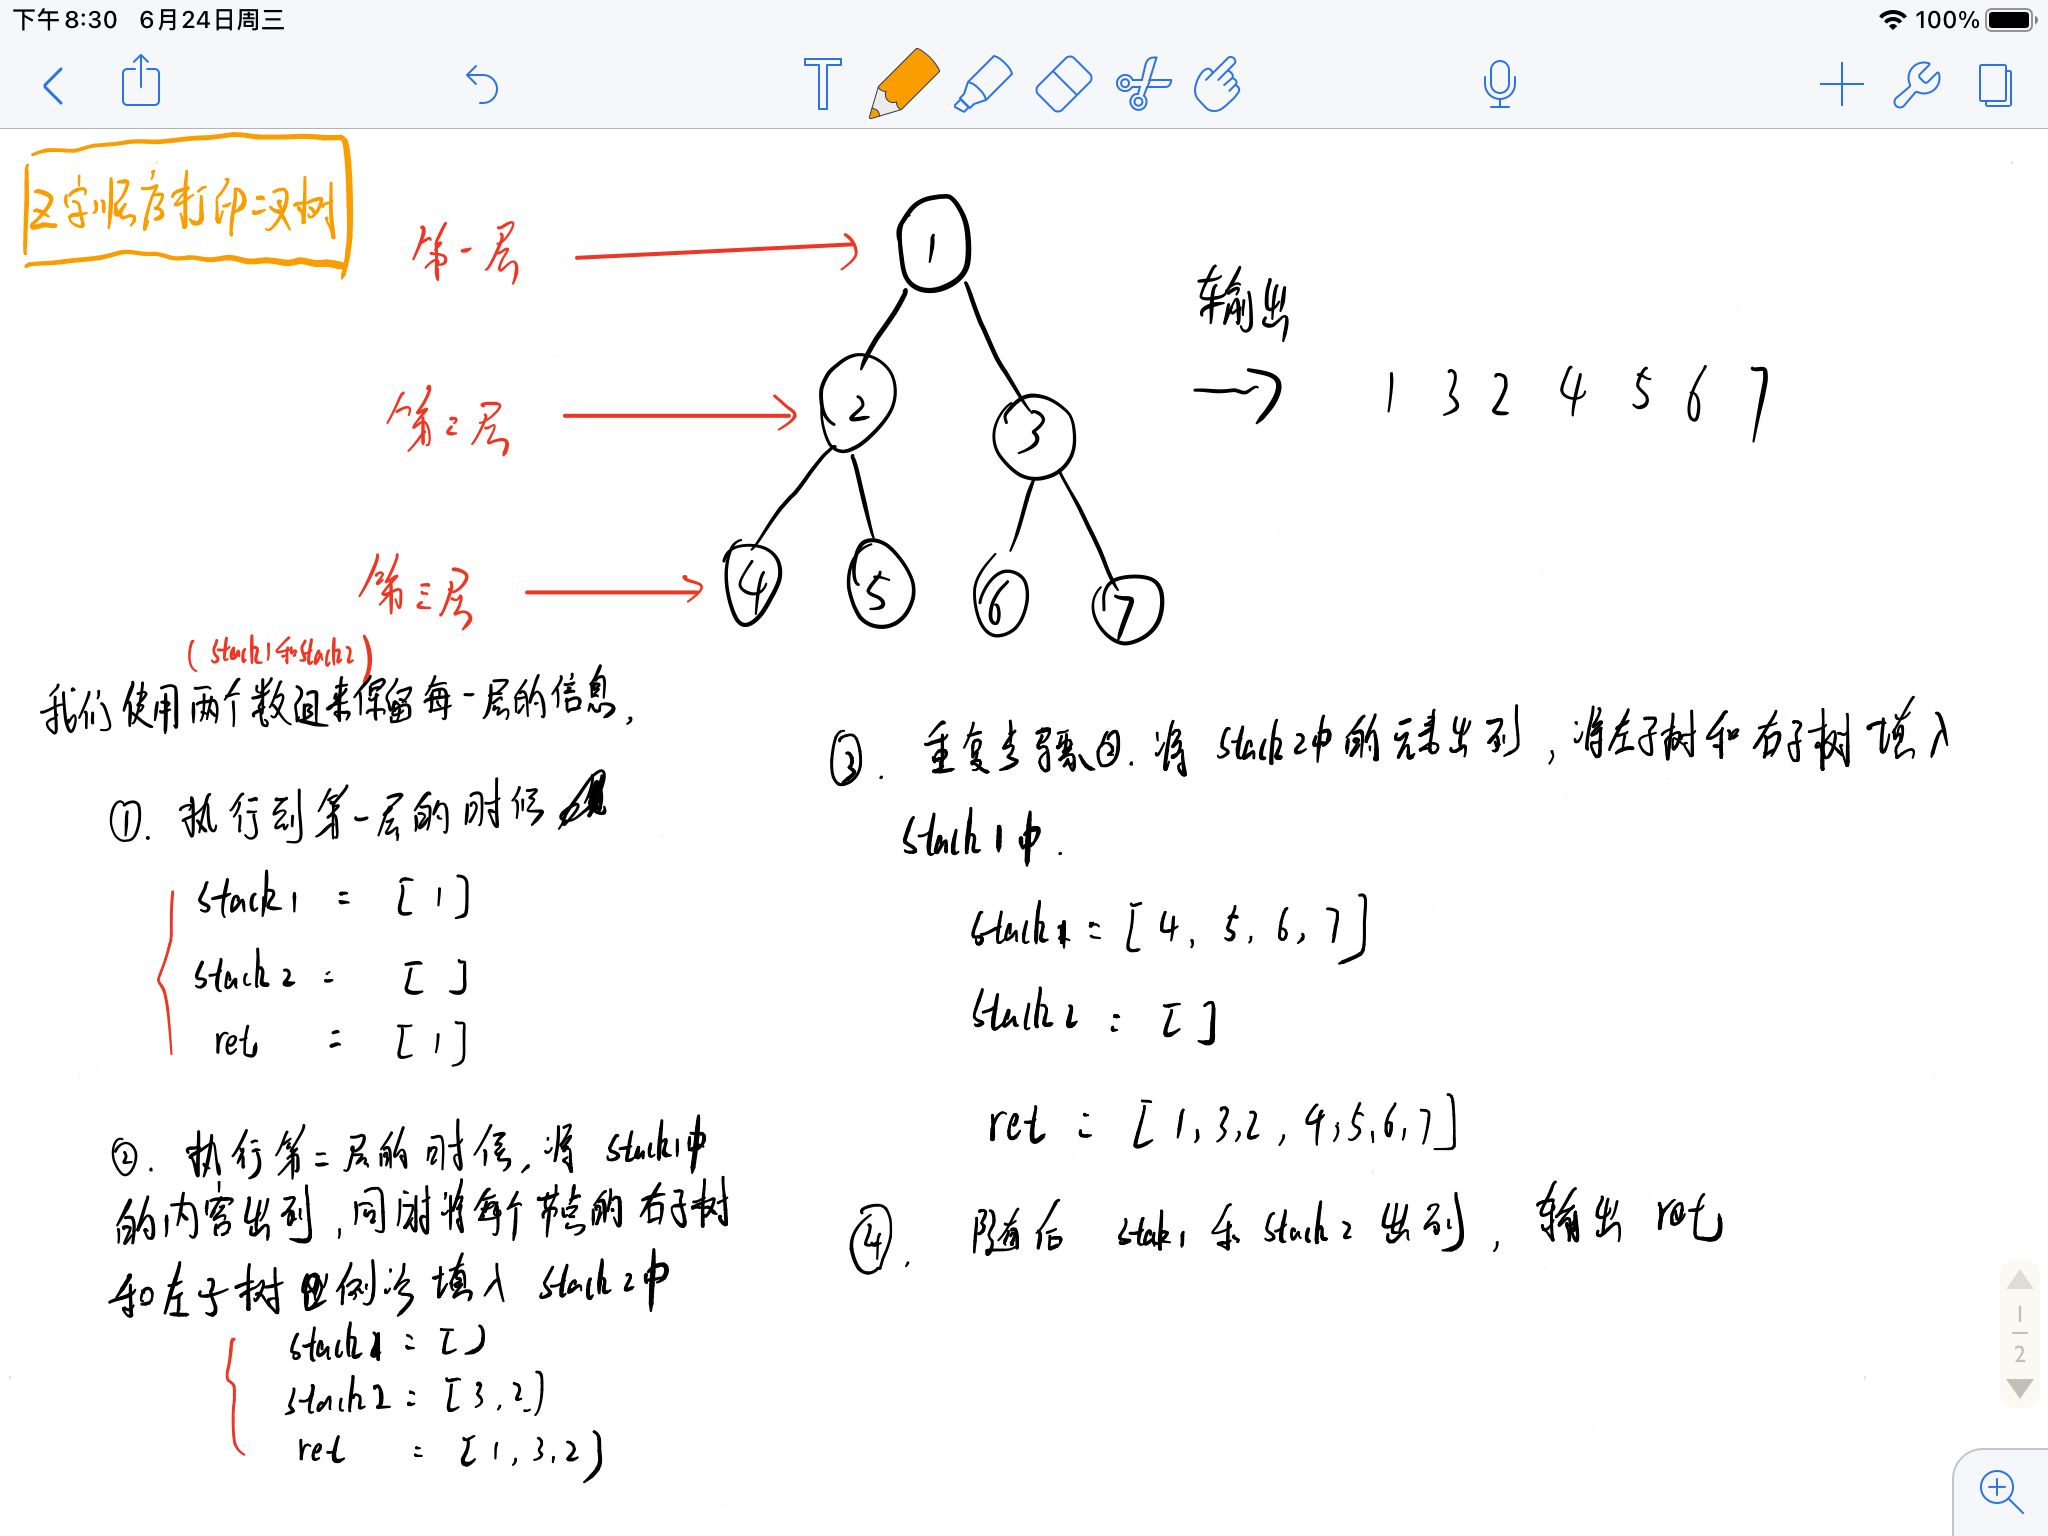 下午8:30 6月24日周三
100%
T
Z字顺序打印二叉树
第一层
1
输出
第二层
2
3
→ 1 3 2 4 5 6 7
第三层
4
5
6
7
(stack1和stack2)
我们使用两个数组来保留每一层的信息,
①. 执行到第一层的时候
stack1 = [1]
stack2 = []
ret = [1]
②. 执行第二层的时候,将 stack1中
的内容出列,同时将每个节点的右子树
和左子树 依次填入 stack2中
stack1 = []
stack2 = [3,2]
ret = [1,3,2]
③. 重复步骤②.将 stack2中的元素出列,将左子树和右子树填入
stack1中.
stack1 = [4,5,6,7]
stack2 = []
ret = [1,3,2,4,5,6,7]
④. 随后 stak1 和 stack2 出列,输出 ret
1
2